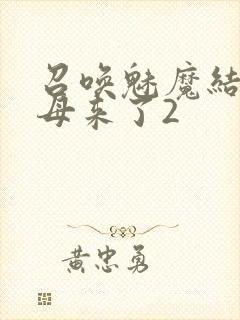 召唤魅魔结
母来了2
黄忠勇